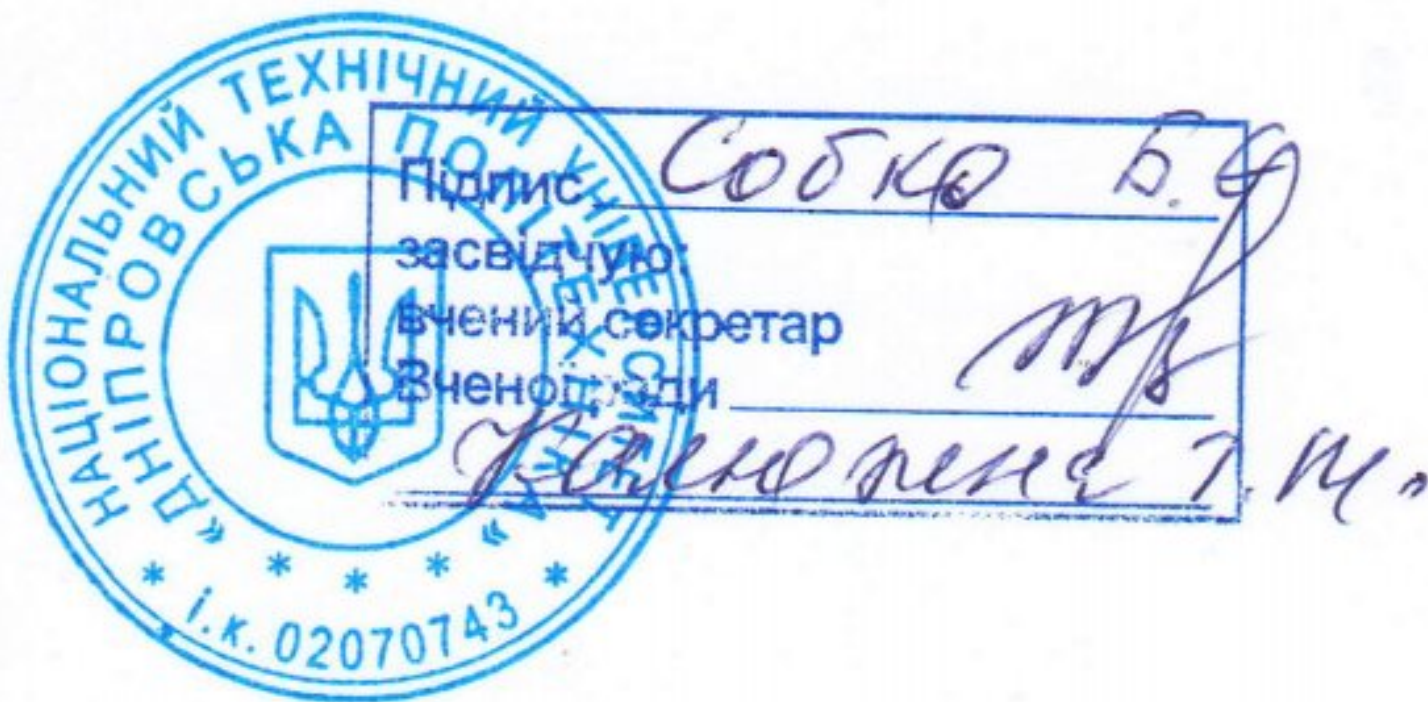 НАЦІОНАЛЬНИЙ ТЕХНІЧНИЙ УНІВЕРСИТЕТ
«ДНІПРОВСЬКА ПОЛІТЕХНІКА»
* * * * *
і.к. 02070743
Підпис Собко Б.Є
засвідчую;
вчений секретар
Вченої ради
Калюжна Т.М.